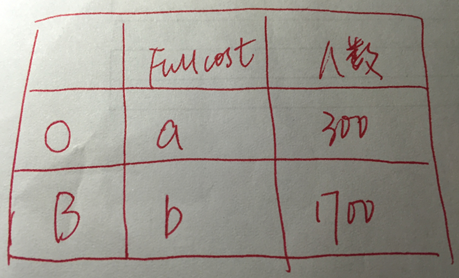 Fullcost 人数
O a 300
B b 1700